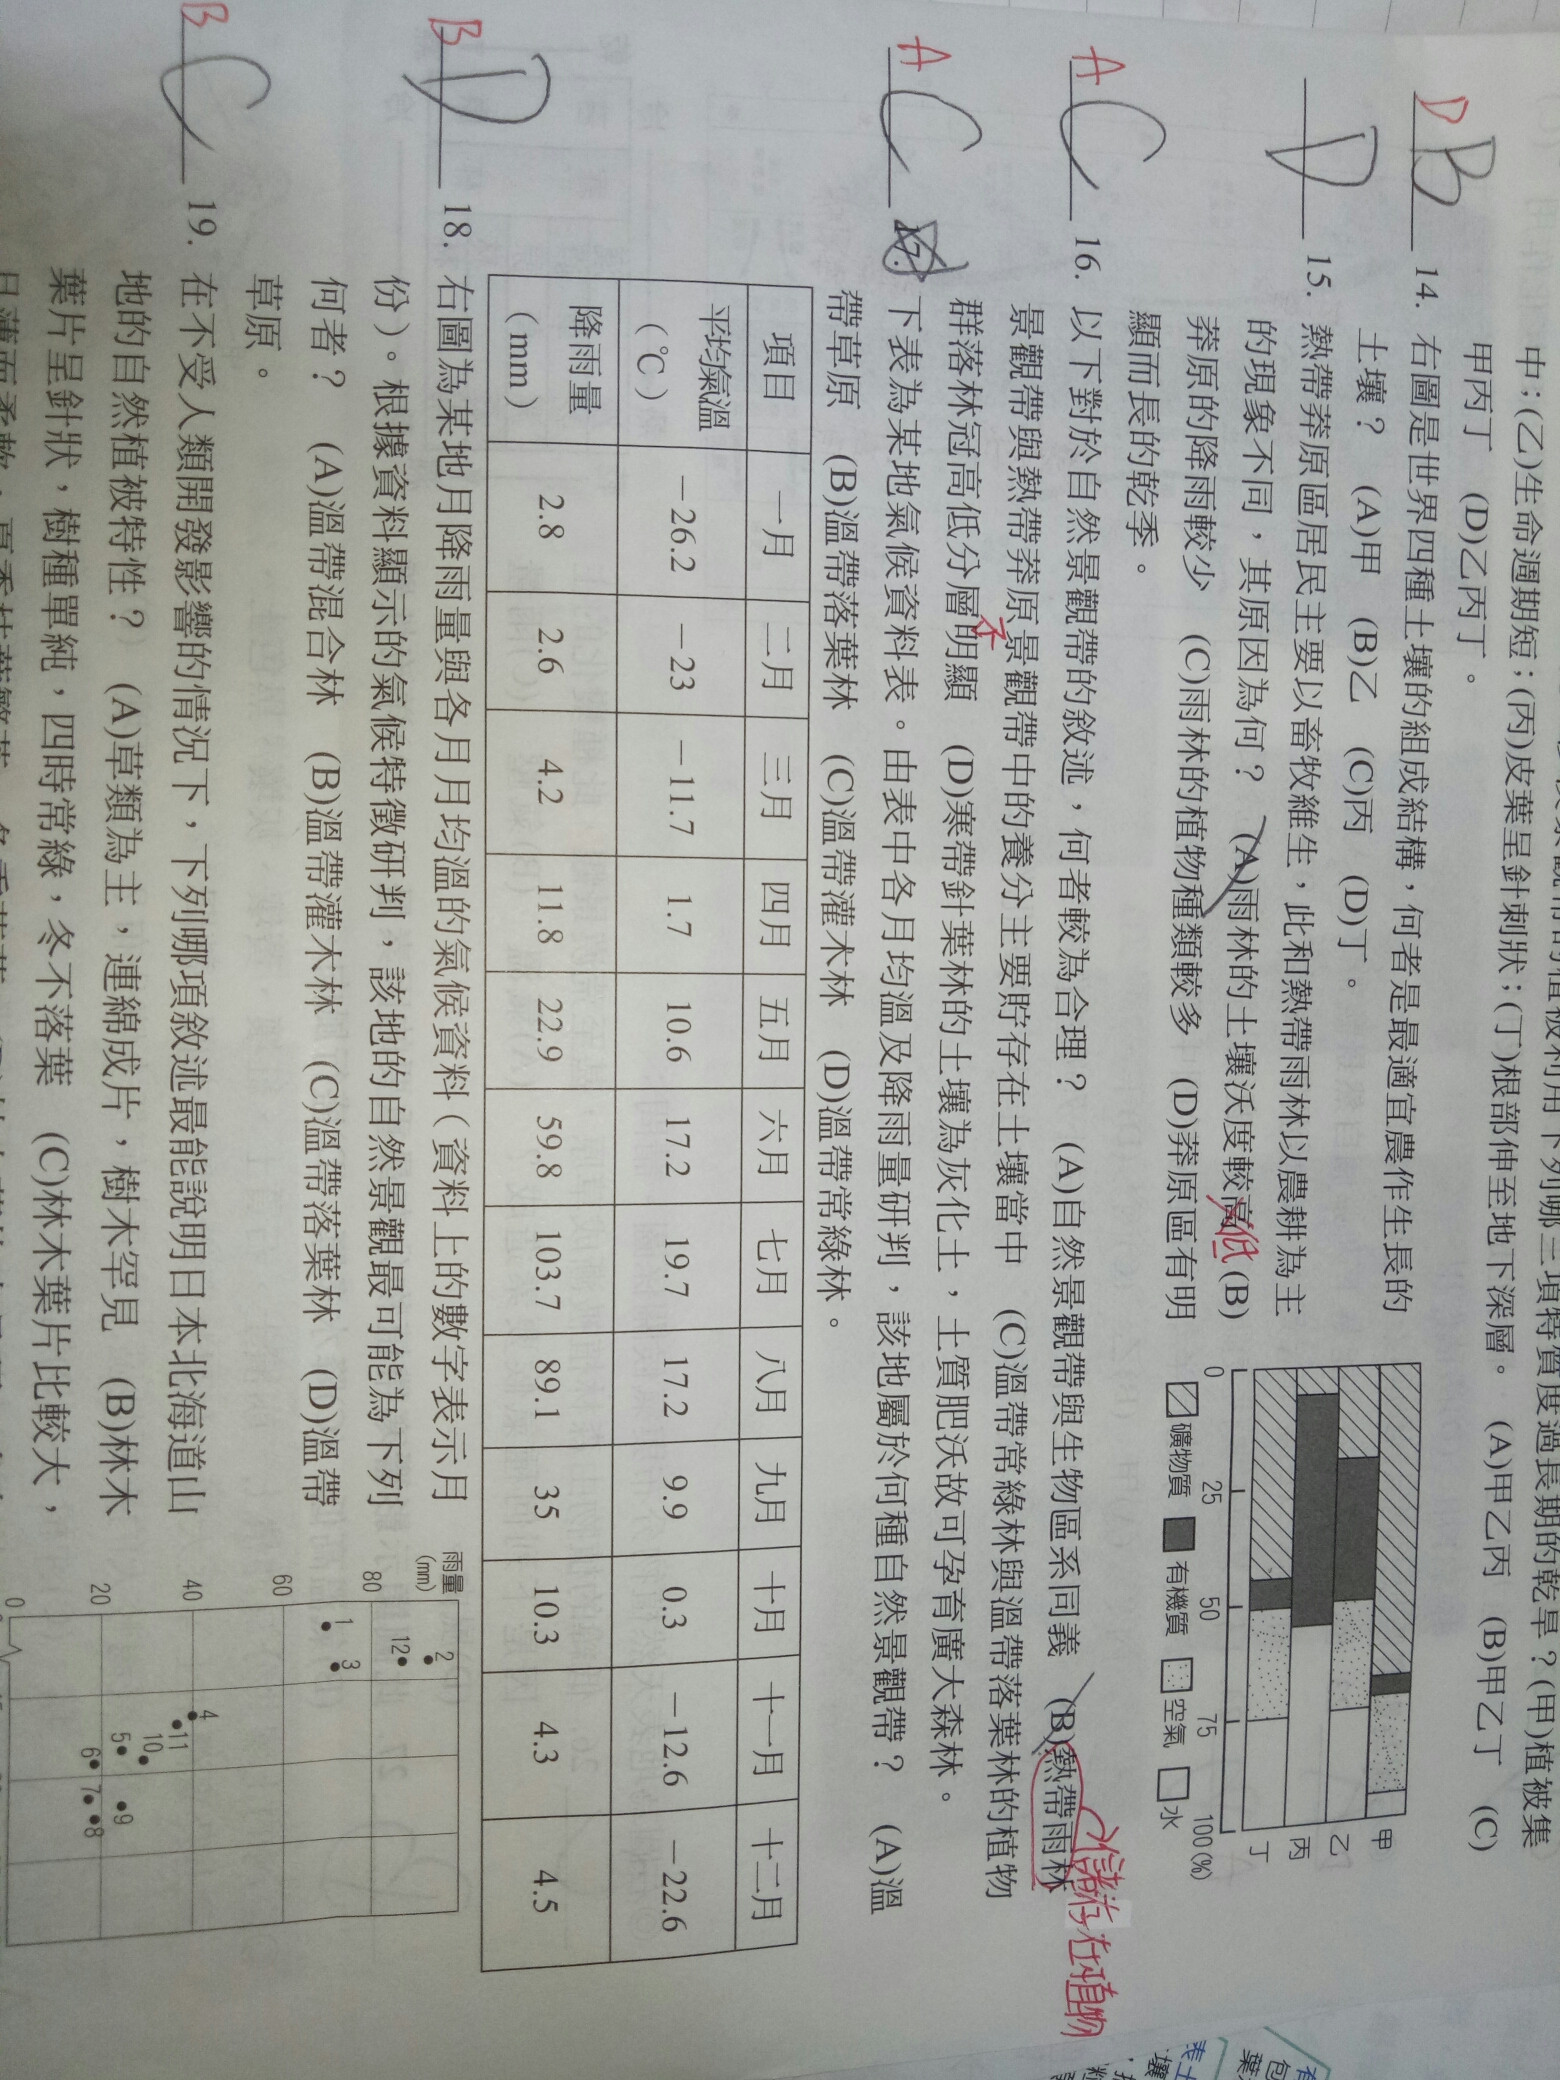 中；(乙)生命週期短；(丙)皮葉呈針刺狀；(丁)根部伸至地下深層。 (A)甲乙丙 (B)甲乙丁 (C)
甲丙丁 (D)乙丙丁。
D B 14. 右圖是世界四種土壤的組成結構，何者是最適宜農作生長的
土壤？ (A)甲 (B)乙 (C)丙 (D)丁。
D 15. 熱帶莽原區居民主要以畜牧維生，此和熱帶雨林以農耕為主
的現象不同，其原因為何？ (A)雨林的土壤沃度較高低 (B)
莽原的降雨較少 (C)雨林的植物種類較多 (D)莽原區有明
顯而長的乾季。
甲
乙
丙
丁
0 25 50 75 100(%)
礦物質 有機質 空氣 水
A C 16. 以下對於自然景觀帶的敘述，何者較為合理？ (A)自然景觀帶與生物區系同義 (B)熱帶雨林
儲存在植物
景觀帶與熱帶莽原景觀帶中的養分主要貯存在土壤當中 (C)溫帶常綠林與溫帶落葉林的植物
不
群落林冠高低分層明顯 (D)寒帶針葉林的土壤為灰化土，土質肥沃故可孕育廣大森林。
A C 17. 下表為某地氣候資料表。由表中各月均溫及降雨量研判，該地屬於何種自然景觀帶？ (A)溫
帶草原 (B)溫帶落葉林 (C)溫帶灌木林 (D)溫帶常綠林。
項目 一月 二月 三月 四月 五月 六月 七月 八月 九月 十月 十一月 十二月
平均氣溫 (℃) －26.2 －23 －11.7 1.7 10.6 17.2 19.7 17.2 9.9 0.3 －12.6 －22.6
降雨量 (mm) 2.8 2.6 4.2 11.8 22.9 59.8 103.7 89.1 35 10.3 4.3 4.5
B D 18. 右圖為某地月降雨量與各月月均溫的氣候資料（資料上的數字表示月
份）。根據資料顯示的氣候特徵研判，該地的自然景觀最可能為下列
何者？ (A)溫帶混合林 (B)溫帶灌木林 (C)溫帶落葉林 (D)溫帶
草原。
雨量
(mm)
80
60
40
20
0
2
12
1
3
4
11
10
5
9
6
7
8
B C 19. 在不受人類開發影響的情況下，下列哪項敘述最能說明日本北海道山
地的自然植被特性？ (A)草類為主，連綿成片，樹木罕見 (B)林木
葉片呈針狀，樹種單純，四時常綠，冬不落葉 (C)林木葉片比較大，